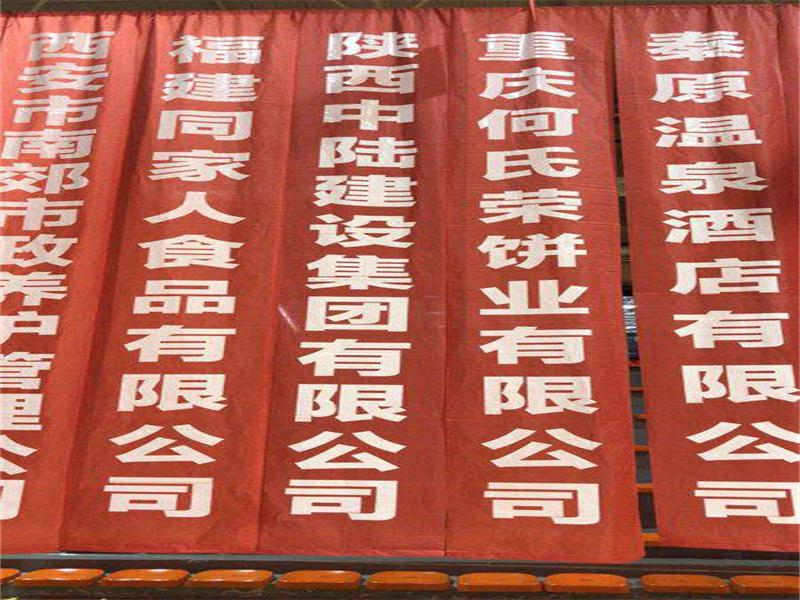 西安市南郊市政养护管理公司
福建同家人食品有限公司
陕西中陆建设集团有限公司
重庆何氏荣饼业有限公司
秦原温泉酒店有限公司